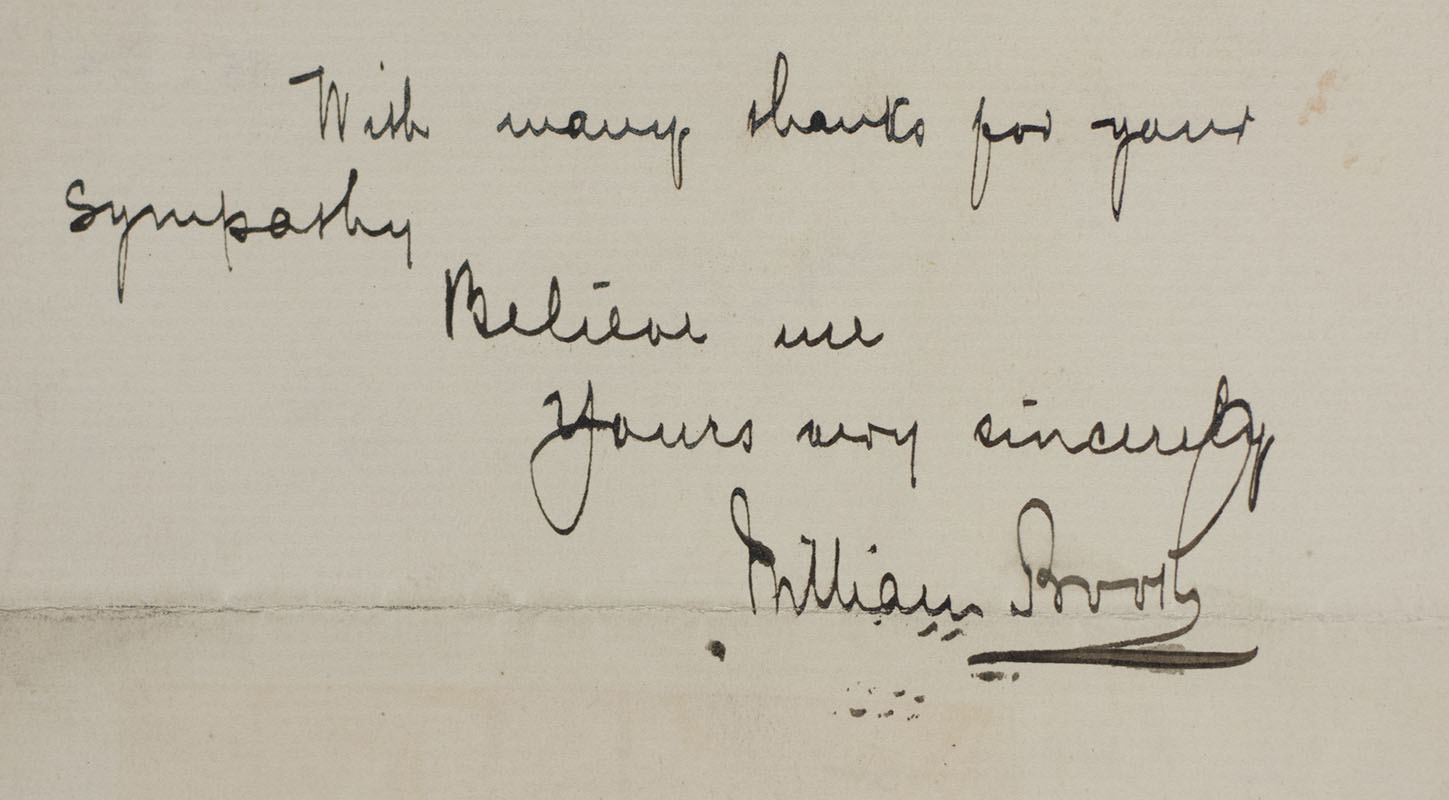 With many thanks for your
Sympathy
Believe me
Yours very sincerely
William Booth